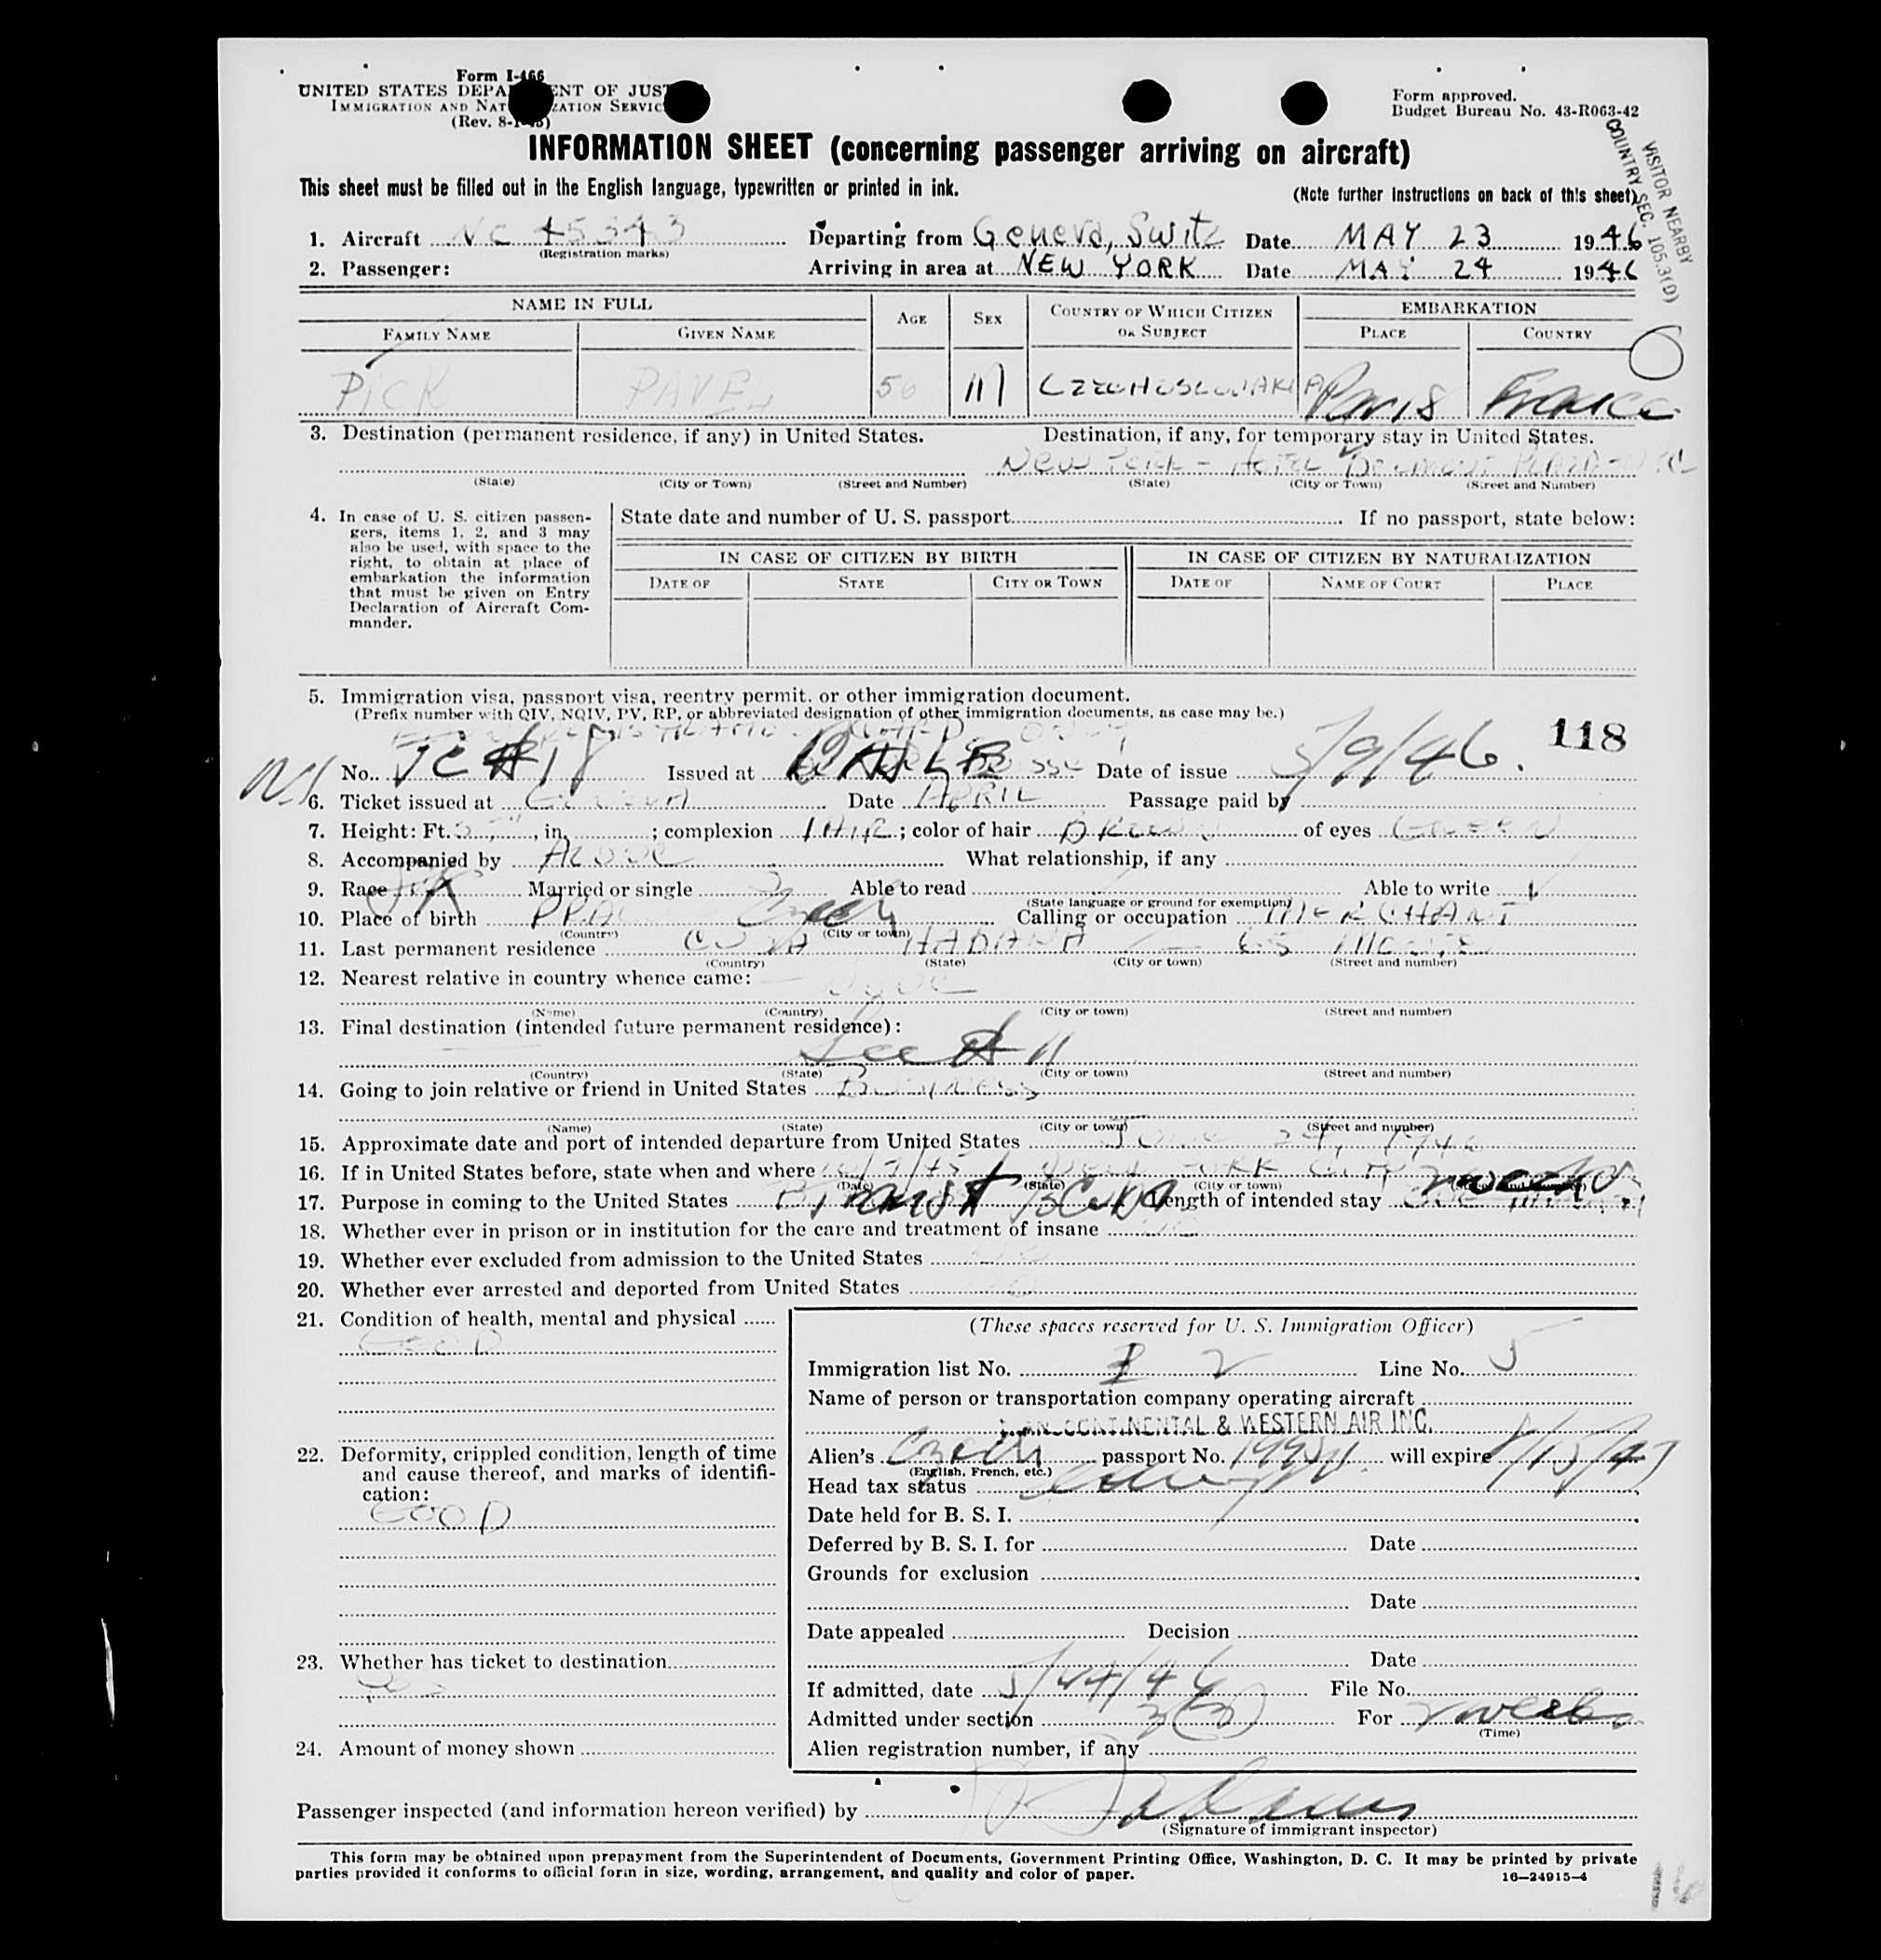 Form I-466
UNITED STATES DEPA ENT OF JUS
IMMIGRATION AND NAT ZATION SERVIC
(Rev. 8-1-45)
Form approved.
Budget Bureau No. 43-R063-42
VISITOR NEARBY
COUNTRY SEC. 105.3(D)
INFORMATION SHEET (concerning passenger arriving on aircraft)
This sheet must be filled out in the English language, typewritten or printed in ink. (Note further instructions on back of this sheet)
1. Aircraft NC 45343 Departing from Geneva, Switz Date MAY 23 1946
(Registration marks)
2. Passenger: Arriving in area at NEW YORK Date MAY 24 1946
NAME IN FULL AGE SEX COUNTRY OF WHICH CITIZEN OR SUBJECT EMBARKATION
FAMILY NAME GIVEN NAME PLACE COUNTRY
PICK PAVEL 56 M CZECHOSLOVAKIA Paris France
3. Destination (permanent residence, if any) in United States. Destination, if any, for temporary stay in United States.
New York - Hotel Plaza
(State) (City or Town) (Street and Number) (State) (City or Town) (Street and Number)
4. In case of U. S. citizen passengers, items 1, 2, and 3 may also be used, with space to the right, to obtain at place of embarkation the information that must be given on Entry Declaration of Aircraft Commander.
State date and number of U. S. passport If no passport, state below:
IN CASE OF CITIZEN BY BIRTH IN CASE OF CITIZEN BY NATURALIZATION
DATE OF STATE CITY OR TOWN DATE OF NAME OF COURT PLACE
5. Immigration visa, passport visa, reentry permit, or other immigration document.
(Prefix number with QIV, NQIV, PV, RP, or abbreviated designation of other immigration documents, as case may be.)
118
No. TC #18 Issued at BASLE Date of issue 5/9/46.
6. Ticket issued at GENEVA Date APRIL Passage paid by
7. Height: Ft. 5 7, in. ; complexion ; color of hair BROWN of eyes GREEN
8. Accompanied by ALONE What relationship, if any
9. Race Married or single Able to read Able to write
(State language or ground for exemption)
10. Place of birth Czech Calling or occupation MERCHANT
(Country) (City or town)
11. Last permanent residence CUBA HABANA
(Country) (State) (City or town) (Street and number)
12. Nearest relative in country whence came:
(Name) (Country) (City or town) (Street and number)
13. Final destination (intended future permanent residence):
See # 11
(Country) (State) (City or town) (Street and number)
14. Going to join relative or friend in United States Business
(Name) (State) (City or town) (Street and number)
15. Approximate date and port of intended departure from United States June 24, 1946
16. If in United States before, state when and where YORK CITY
(Date) (State) (City or town)
17. Purpose in coming to the United States Transit Cuba Length of intended stay 2 weeks
18. Whether ever in prison or in institution for the care and treatment of insane NO
19. Whether ever excluded from admission to the United States
20. Whether ever arrested and deported from United States
21. Condition of health, mental and physical
GOOD
22. Deformity, crippled condition, length of time and cause thereof, and marks of identification:
GOOD
23. Whether has ticket to destination
Yes
24. Amount of money shown
(These spaces reserved for U. S. Immigration Officer)
Immigration list No. 2 Line No. 5
Name of person or transportation company operating aircraft
TRANSCONTINENTAL & WESTERN AIR INC.
Alien's Czech passport No. will expire 8/15/47
(English, French, etc.)
Head tax status
Date held for B. S. I.
Deferred by B. S. I. for Date
Grounds for exclusion
Date
Date appealed Decision
Date
If admitted, date 5/24/46 File No.
Admitted under section 3(3) For 2 weeks
(Time)
Alien registration number, if any
Passenger inspected (and information hereon verified) by
(Signature of immigrant inspector)
This form may be obtained upon prepayment from the Superintendent of Documents, Government Printing Office, Washington, D. C. It may be printed by private
parties provided it conforms to official form in size, wording, arrangement, and quality and color of paper. 16—24915-4
16